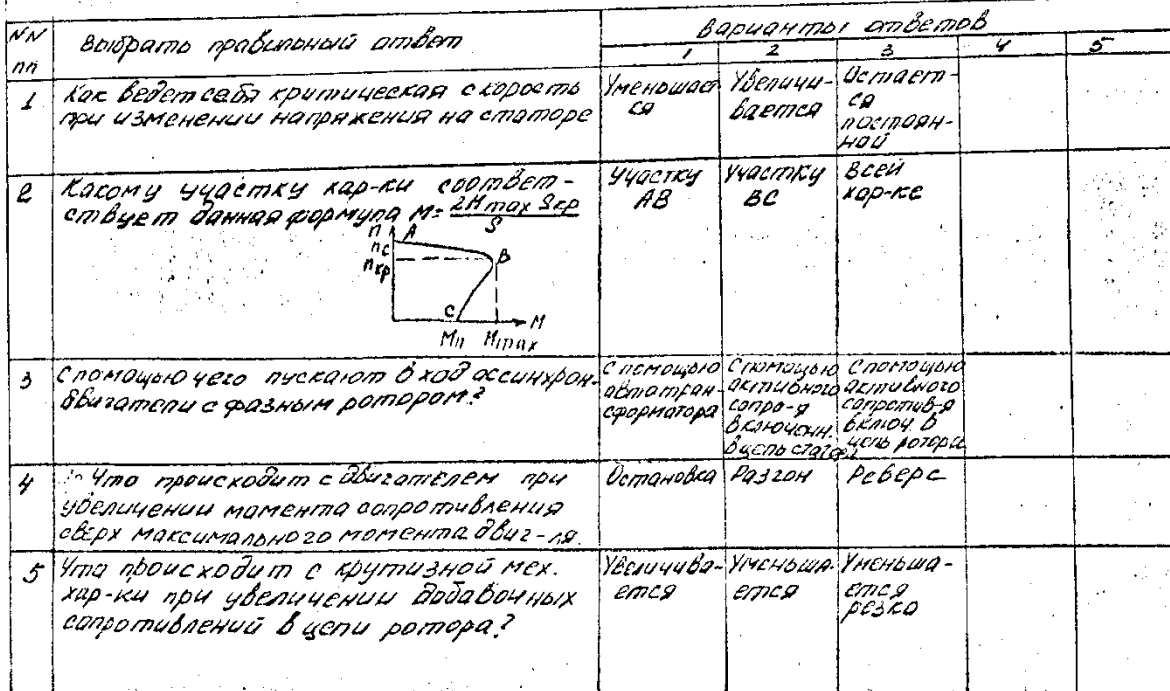 NN
пп
Выбрать правильный ответ
Варианты ответов
1 2 3 4 5
1
Как ведет себя критическая скорость
при изменении напряжения на статоре
Уменьшает
ся
Увеличи-
вается
Остает-
ся
постоян-
ной
2
Какому участку хар-ки соответ-
ствует данная формула M= 2Mmax Sкр
S
Участку
АВ
Участку
ВС
Всей
хар-ке
n A
nc
nкр
B
C
M
Мп Мmax
3
С помощью чего пускают в ход ассинхрон.
двигатели с фазным ротором?
С помощью
автотран-
сформатора
С помощью
активного
сопро-я
включенн.
в цепь
С помощью
активного
сопротив-я
включ. в
цепь ротора
4
Что происходит с двигателем при
увеличении момента сопротивления
сверх максимального момента двиг-ля.
Остановка
Разгон
Реверс
5
Что происходит с крутизной мех.
хар-ки при увеличении добавочных
сопротивлений в цепи ротора?
Увеличива-
ется
Уменьша-
ется
Уменьша-
ется
резко